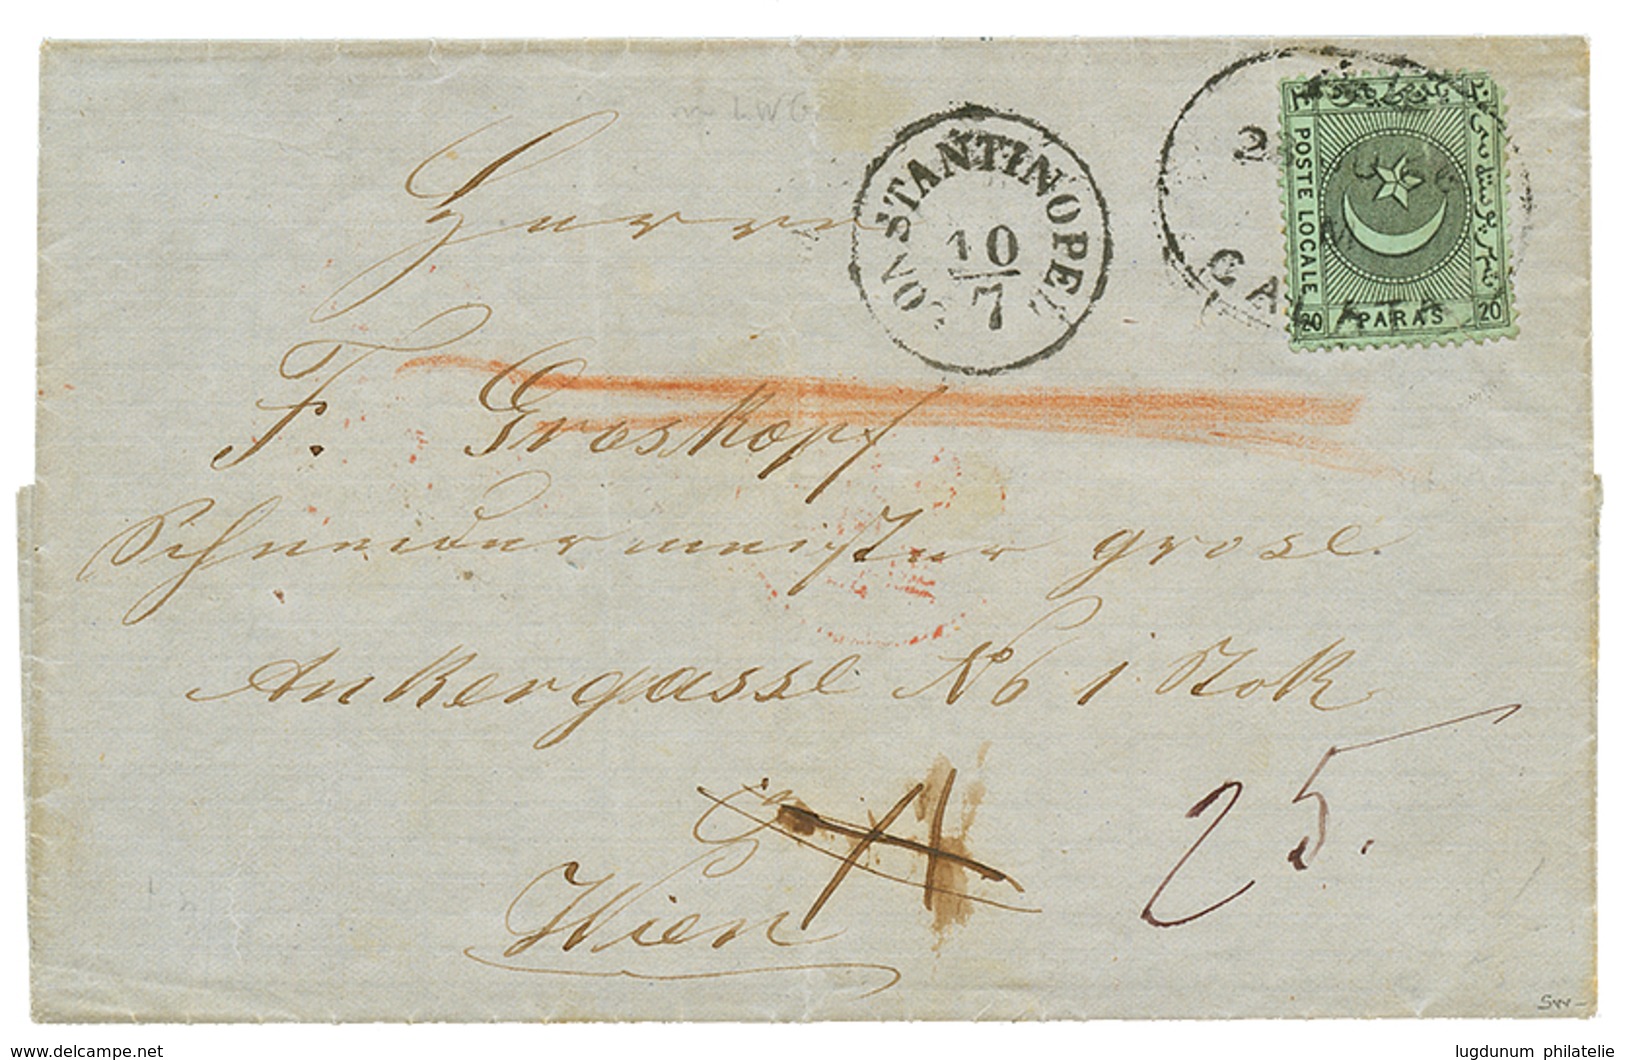 CONSTANTINOPEL
10
7
GALATA
POSTE LOCALE
20 PARAS 20
Herrn
F. Groskopf
Schneidermeister
Ankergasse No 1 Stok
in
Wien
25.
delcampe.net
lugdunum philatelie